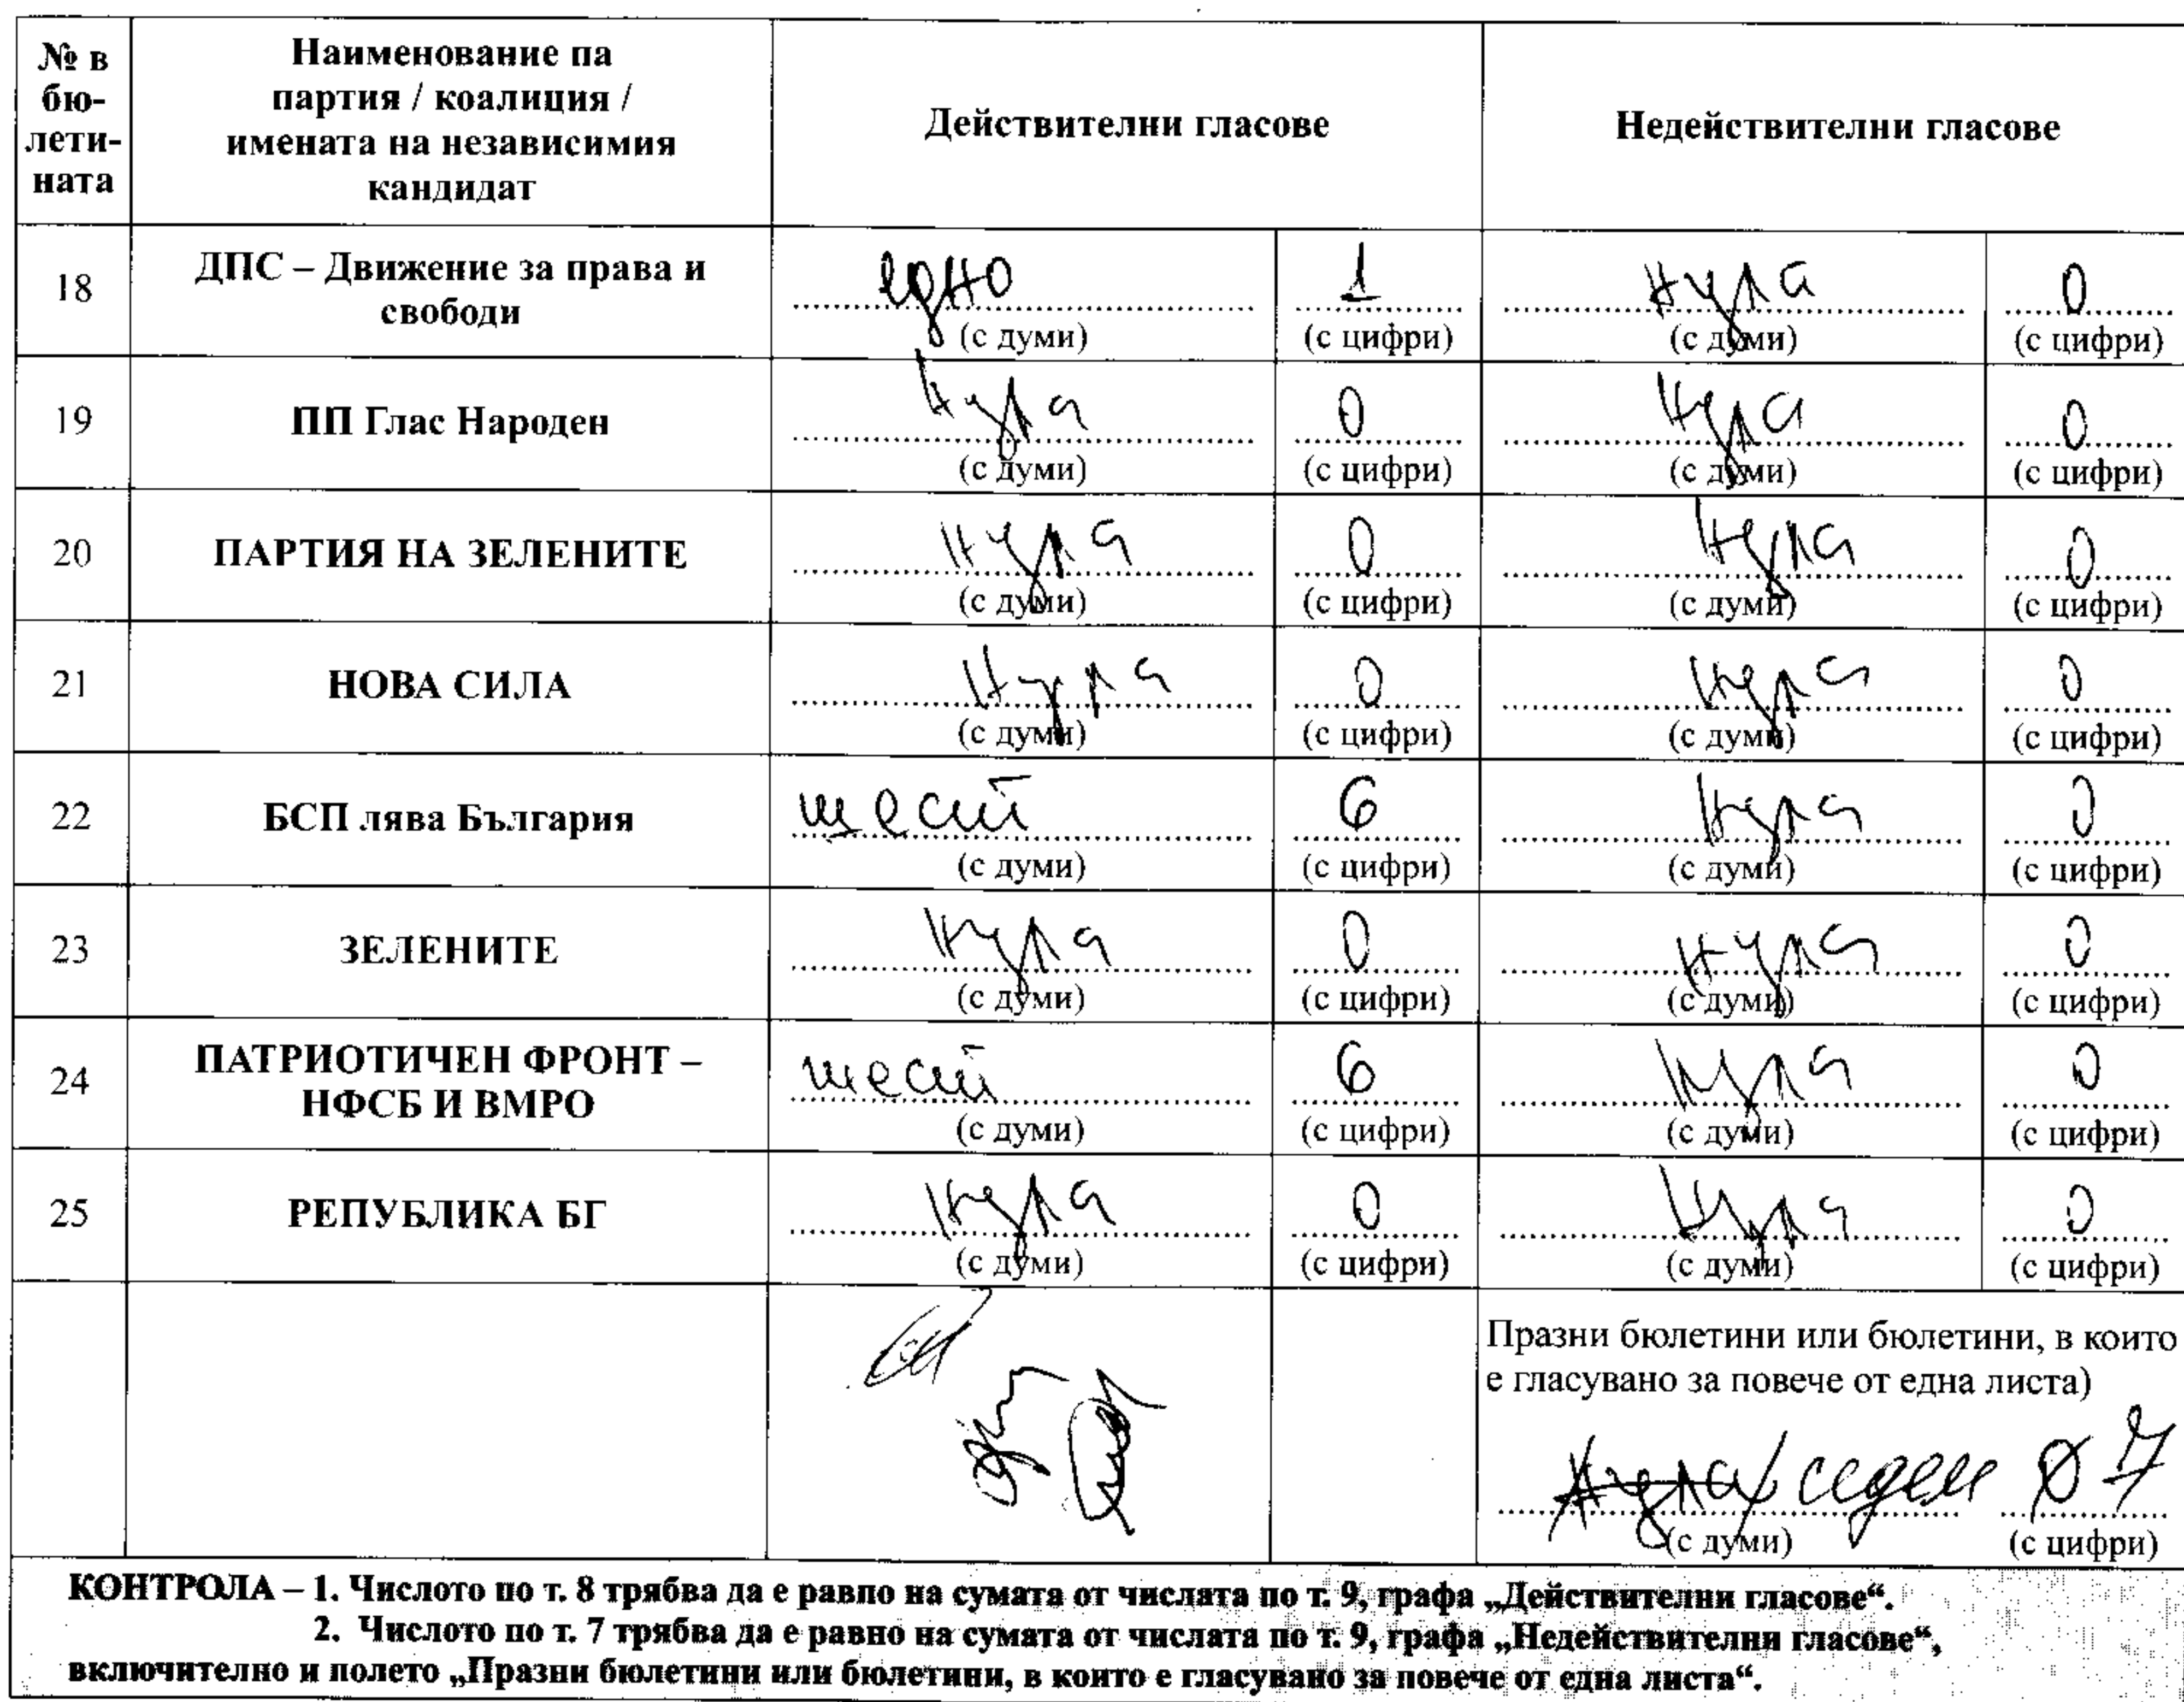 № в бю-лети-ната
Наименование па партия / коалиция / имената на независимия кандидат
Действителни гласове
Недействителни гласове
18 ДПС – Движение за права и свободи едно (с думи) 1 (с цифри) нула (с думи) 0 (с цифри)
19 ПП Глас Народен нула (с думи) 0 (с цифри) нула (с думи) 0 (с цифри)
20 ПАРТИЯ НА ЗЕЛЕНИТЕ нула (с думи) 0 (с цифри) нула (с думи) 0 (с цифри)
21 НОВА СИЛА нула (с думи) 0 (с цифри) нула (с думи) 0 (с цифри)
22 БСП лява България шест (с думи) 6 (с цифри) нула (с думи) 0 (с цифри)
23 ЗЕЛЕНИТЕ нула (с думи) 0 (с цифри) нула (с думи) 0 (с цифри)
24 ПАТРИОТИЧЕН ФРОНТ – НФСБ И ВМРО шест (с думи) 6 (с цифри) нула (с думи) 0 (с цифри)
25 РЕПУБЛИКА БГ нула (с думи) 0 (с цифри) нула (с думи) 0 (с цифри)
Празни бюлетини или бюлетини, в които
е гласувано за повече от една листа)
нула седем 0 7
(с думи) (с цифри)
КОНТРОЛА – 1. Числото по т. 8 трябва да е равно на сумата от числата по т. 9, графа „Действителни гласове“.
2. Числото по т. 7 трябва да е равно на сумата от числата по т. 9, графа „Недействителни гласове“,
включително и полето „Празни бюлетини или бюлетини, в които е гласувано за повече от една листа“.